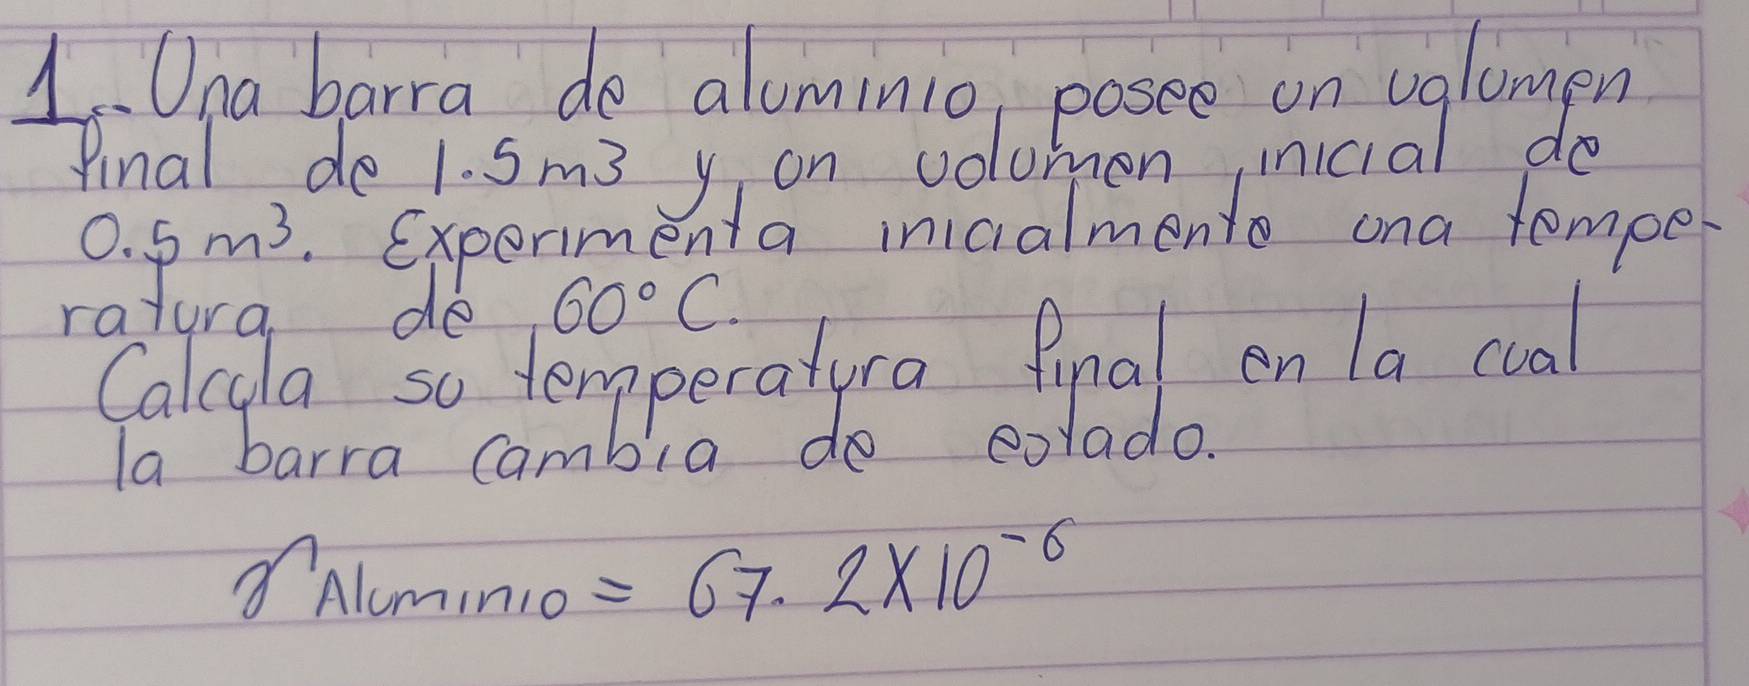 1.- Una barra de aluminio, posee un volumen
final de 1.5 m3 y, un volumen inicial de
0.5 m³. Experimenta inicialmente una tempe-
ratura de 60°C.
Calcula su temperatura final en la cual
la barra cambia de estado.
γ Aluminio = 67.2X10⁻⁶